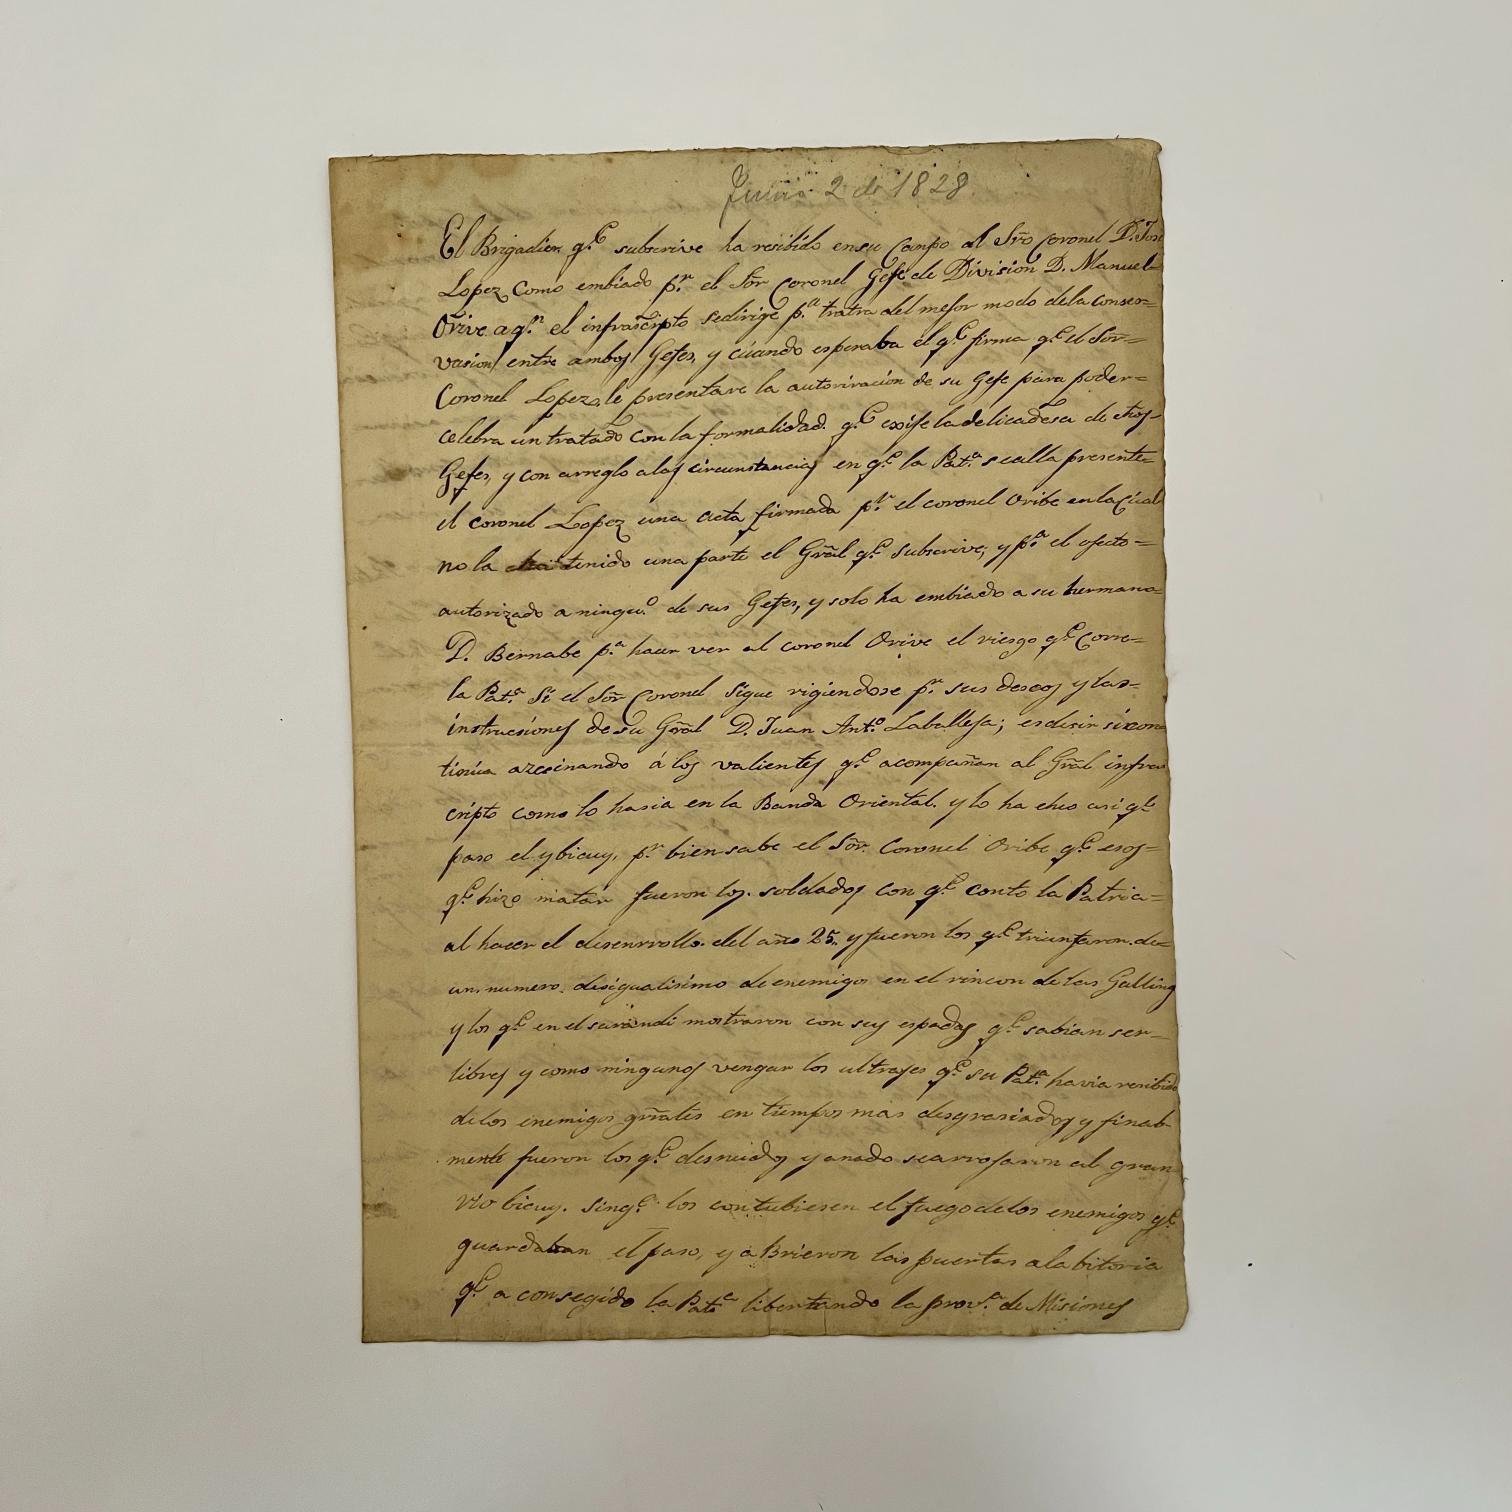 Junio 2 de 1828
El Brigadier q.e subscrive ha resibido en su Campo al Sr̃o Coronel D. José
Lopez, como embiado p.r el Sor̃ Coronel Gefe de Division D. Manuel
Orive a q.n el infrascripto se dirige p.a tratra del mejor modo de la conser=
vasion entre ambos Gefes, y cuando esperaba el q.e firma q.e el Sor̃=
Coronel Lopez, le presentare la autorirasion de su Gefe para poder=
celebra un tratado con la formalidad. q.e exije la delicadesa de dhos
Gefes, y con arreglo a las circunstancias en q.e la Pat.a se alla presente
el coronel Lopez una acta firmada p.r el coronel Oribe en la cual
no la ha tenido una parte el Gr̃al q.e subscrive; y p.a el efecto=
autorizado a ningu.o de sus Gefes, y solo ha embiado a su hermano=
D. Bernabe p.a hacer ver al coronel Orive el riesgo q.e Corre=
la Pat.a Si el Sor̃ Coronel sigue rigiendose p.r sus deseos y las=
instrucsiones de su Gr̃al D. Juan Ant.o Laballeja; es desir si con=
tinúa azecinando á los valientes q.e acompañan al Gr̃al infras
cripto como lo hasia en la Banda Oriental. y lo ha echo asi q.e
paso el ybicuy, p.r bien sabe el Sor̃. Coronel Oribe q.e esos=
q.e hizo matar fueron los. soldados con q.e conto la Patria=
al hacer el desenrrollo. del año 25. y fueron los q.e triunfaron. de=
un. numero. desigualisimo de enemigos en el rincon de las Gallinas
y los q.e en el sarandi mostraron con sus espadas q.e sabian ser=
libres y como ningunos vengar los ultrajes q.e su Pat.a havia resibido
de los enemigos gr̃ates en tiempos mas desgrasiados y final
mente fueron los q.e desnudos y a nado se arrojaron al gran
rio bicuy. sin q.e los contubiesen el fuego de los enemigos q.e
guardaban el paso, y a Brieron las puertas a la bitoria
q.e a consegido la Pat.a libertando la prov.a de Misiones